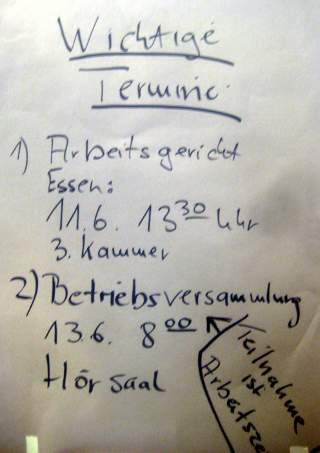 Wichtige
Termine
1) Arbeitsgericht
Essen:
11.6. 13 30 Uhr
3. Kammer
2) Betriebsversammlung
13.6. 8 00
Hörsaal
Teilnahme
ist